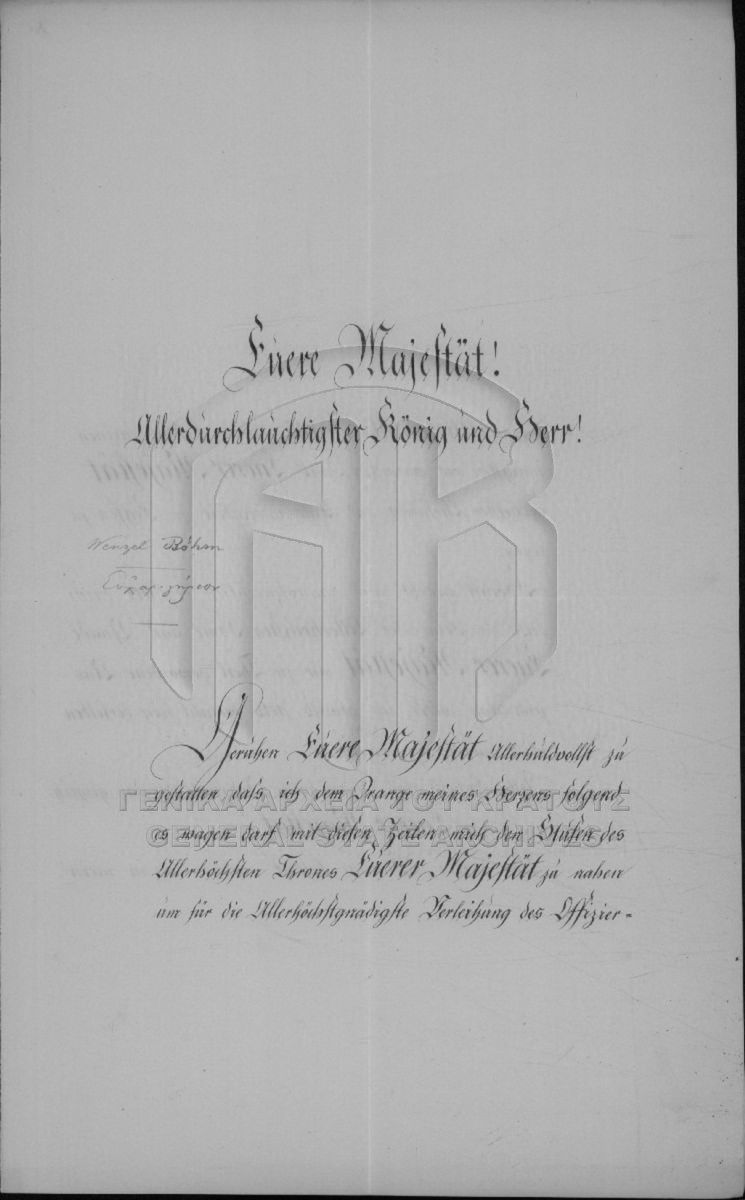 Euere Majestät!
Allerdurchlauchtigster König und Herr!
Wenzel Böhm
Geruhen Euere Majestät Allerhuldvollst zu
gestatten dass ich dem Drange meines Herzens folgend
es wagen darf mit diesen Zeilen mich den Stufen des
Allerhöchsten Thrones Euerer Majestät zu nahen
um für die Allerhöchstgnädigste Verleihung des Offizier-
ΓΕΝΙΚΑ ΑΡΧΕΙΑ ΤΟΥ ΚΡΑΤΟΥΣ
GENERAL STATE ARCHIVES